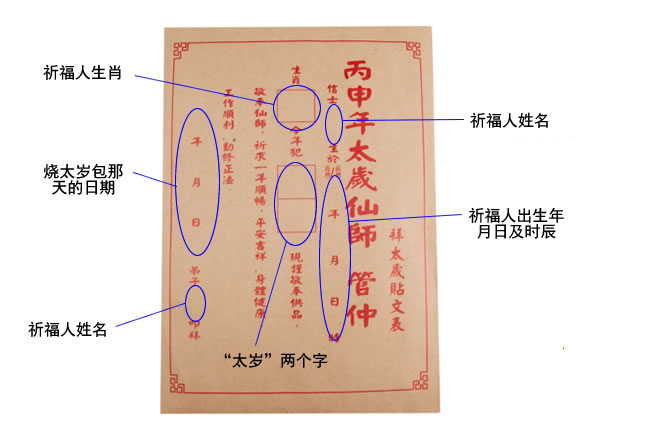 祈福人生肖
烧太岁包那
天的日期
祈福人姓名
“太岁”两个字
祈福人姓名
祈福人出生年
月日及时辰
拜太歲貼文表
丙申年太歲仙師 管仲
信士 生於 年 月 日 時
生肖 今年犯 現謹敬奉供品，
敬奉仙師，祈求一年順暢，平安吉祥，身體健康
工作順利，勤修正法。
年 月 日 弟子 叩拜